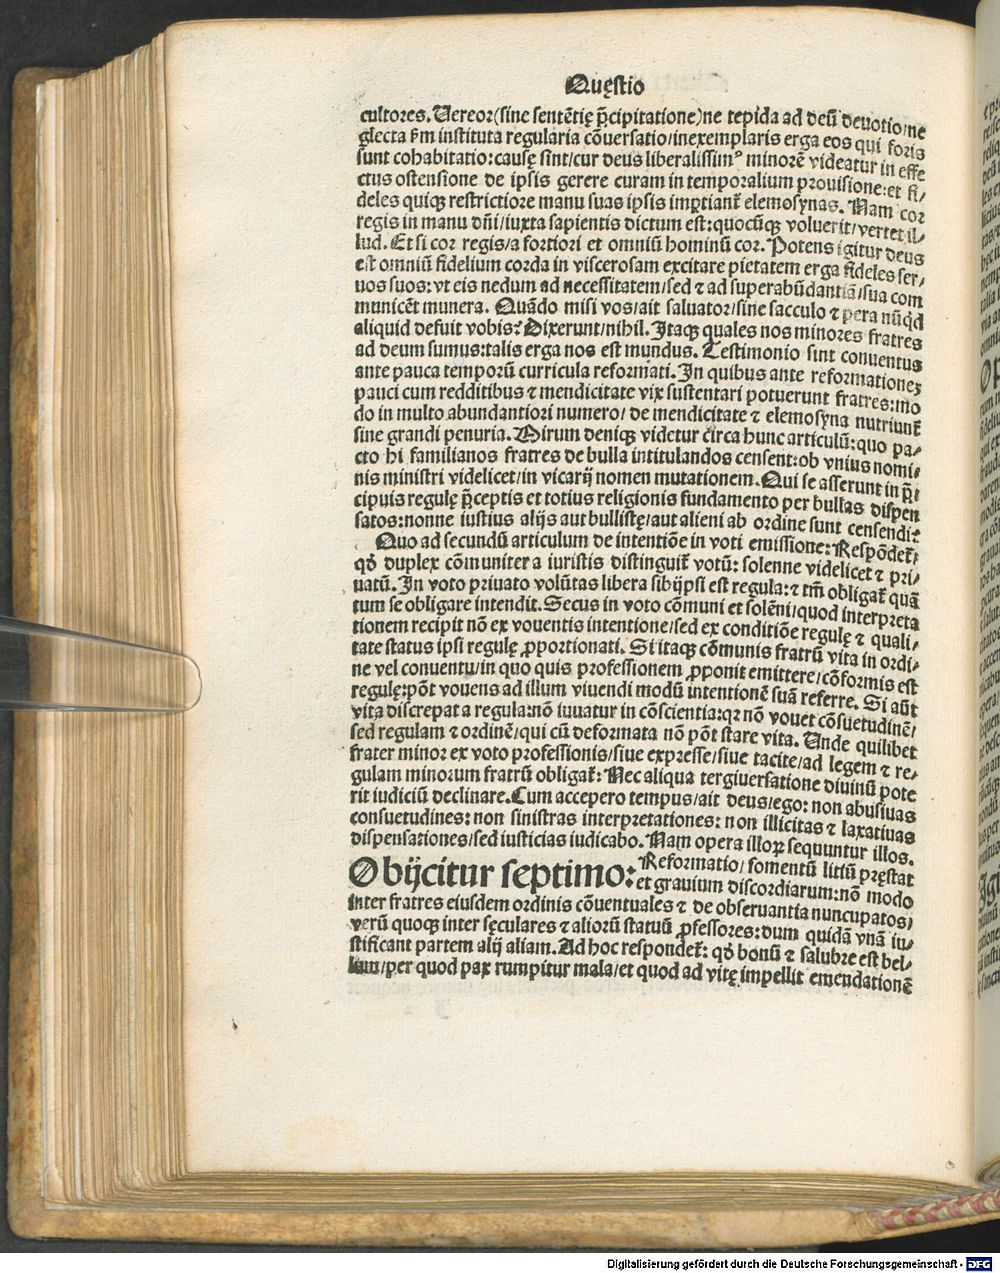 Quęstio
cultores. Uereor(sine sentētię p̄cipitatione)ne tepida ad deū deuotio/ne
glecta fm̄ instituta regularia cōuersatio/inexemplaris erga eos qui foris
sunt cohabitatio: causę sint/cur deus liberalissimꝰ minorē videatur in effe
ctus ostensione de ipsis gerere curam in temporalium prouisione: et fi/
deles quiqꝫ restrictiore manu suas ipsis imp̄tiant̄ elemosynas. Nam cor
regis in manu dn̄i/iuxta sapientis dictum est: quocūqꝫ voluerit/vertet il/
lud. Et si cor regis/a fortiori et omniū hominū cor. Potens igitur deus
est omniū fidelium corda in viscerosam excitare pietatem erga fideles ser/
uos suos: vt eis nedum ad necessitatem/sed ⁊ ad superabūdantiā/sua com
municēt munera. Quādo misi vos/ait saluator/sine sacculo ⁊ pera nūqd
aliquid defuit vobis? Dixerunt/nihil. Itaqꝫ quales nos minores fratres
ad deum sumus: talis erga nos est mundus. Testimonio sint conuentus
ante pauca temporū curricula reformati. In quibus ante reformationeꝫ
pauci cum redditibus ⁊ mendicitate vix sustentari potuerunt fratres: mo
do in multo abundantiori numero/ de mendicitate ⁊ elemosyna nutriunt̄
sine grandi penuria. Mirum deniqꝫ videtur circa hunc articulū: quo pa/
cto hi familianos fratres de bulla intitulandos censent: ob vnius nomi/
nis ministri videlicet/in vicarij nomen mutationem. Qui se asserunt in p̄i
cipuis regulę p̄ceptis et totius religionis fundamento per bullas dispen
satos: nonne iustius alijs aut bullistę/aut alieni ab ordine sunt censendi?
Quo ad secundū articulum de intentiōe in voti emissione: Respōdet̄:
qđ duplex cōmuniter a iuristis distinguit̄ votū: solenne videlicet ⁊ pri/
uatū. In voto priuato volūtas libera sibijpsi est regula: ⁊ tm̄ obligat̄ quā
tum se obligare intendit. Secus in voto cōmuni et solēni/quod interpreta
tionem recipit nō ex vouentis intentione/sed ex conditiōe regulę ⁊ quali/
tate status ipsi regulę ꝓportionati. Si itaqꝫ cōmunis fratrū vita in ordi/
ne vel conuentu/in quo quis professionem ꝓponit emittere/cōformis est
regulę: pōt vouens ad illum viuendi modū intentionē suā referre. Si aūt
vita discrepat a regula: nō iuuatur in cōscientia: qꝛ nō vouet cōsuetudinē/
sed regulam ⁊ ordinē/qui cū deformata nō pōt stare vita. Unde quilibet
frater minor ex voto professionis/siue expresse/siue tacite/ad legem ⁊ re/
gulam minorum fratrū obligat̄: Nec aliqua tergiuersatione diuinū pote
rit iudiciū declinare. Cum accepero tempus/ait deus/ego: non abusiuas
consuetudines: non sinistras interpretationes: non illicitas ⁊ laxatiuas
dispensationes/sed iusticias iudicabo. Nam opera illoꝝ sequuntur illos.
Obijcitur septimo: Reformatio/ fomentū litiū pręstat
et grauium discordiarum: nō modo
inter fratres eiusdem ordinis cōuentuales ⁊ de obseruantia nuncupatos/
verū quoqꝫ inter sęculares ⁊ aliorū statuū ꝓfessores: dum quidā vnā iu/
stificant partem alij aliam. Ad hoc respondet̄: qđ bonū ⁊ salubre est bel/
lum/per quod pax rumpitur mala/et quod ad vitę impellit emendationē
Digitalisierung gefördert durch die Deutsche Forschungsgemeinschaft - DFG